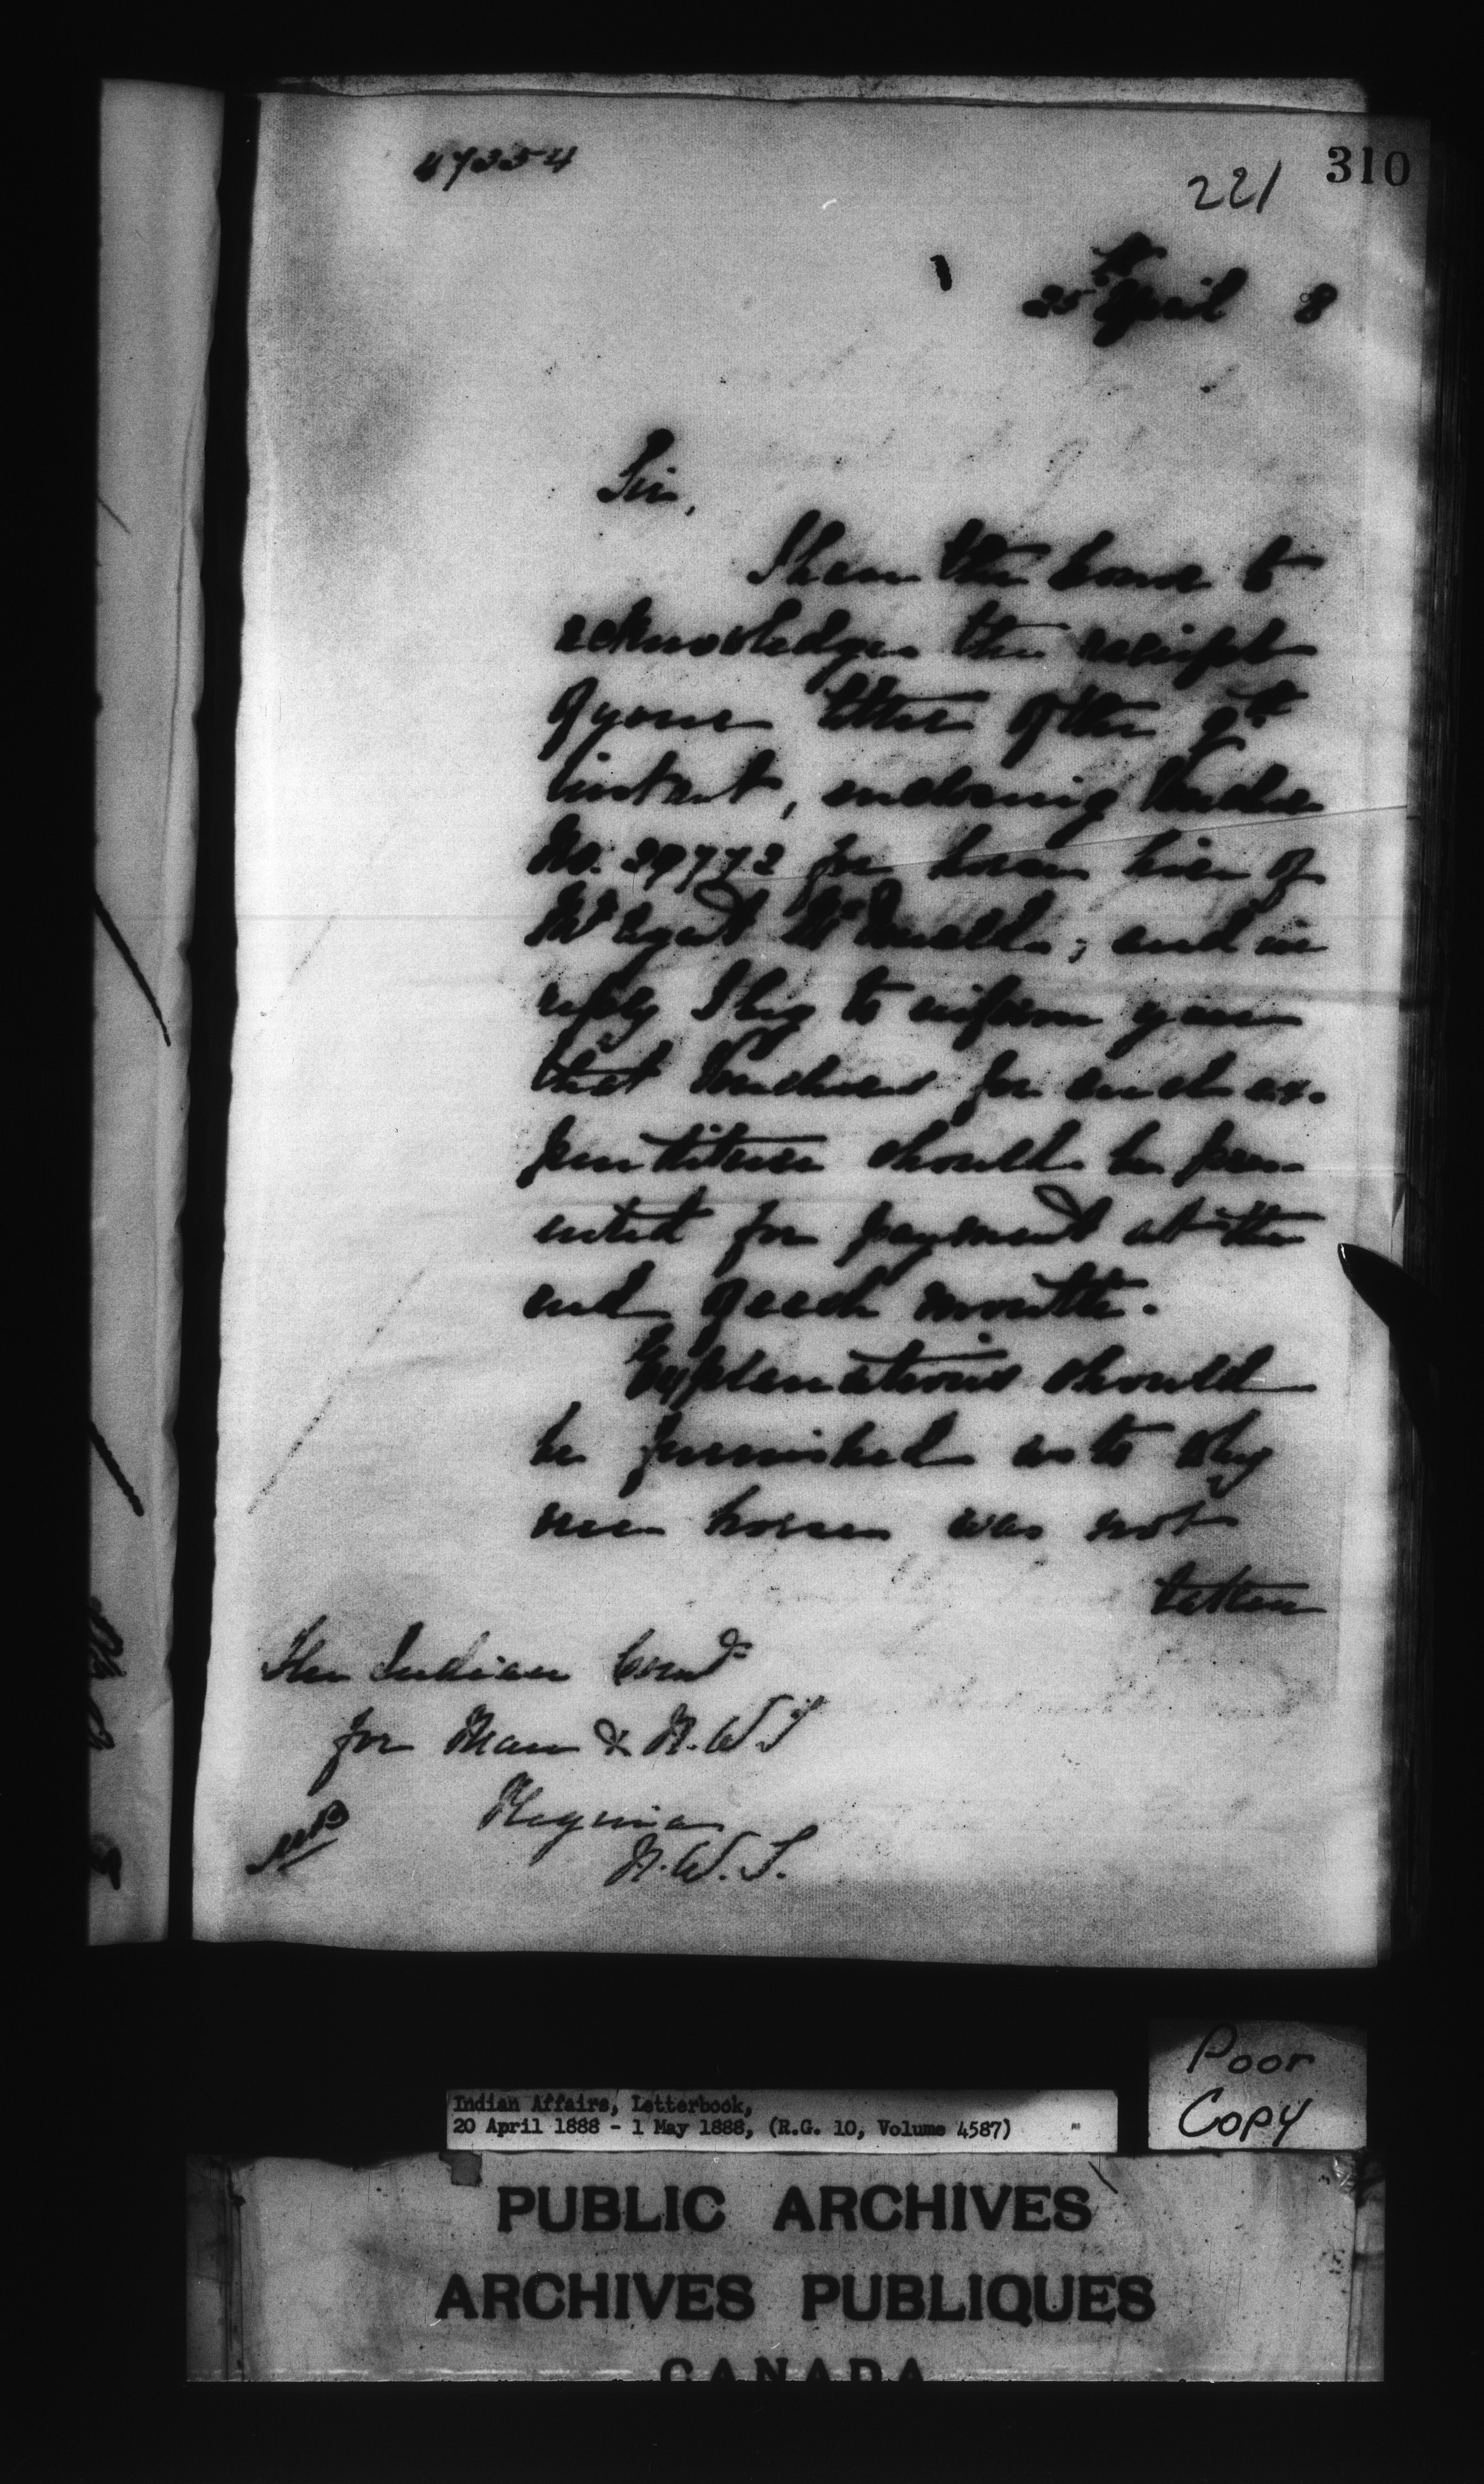 47354
221 310
25th April 8
Sir,
I have the honor to
acknowledge the receipt
of your letter of the 9th
instant, enclosing Voucher
No. 29772 for horse hire of
Mr Agent ; and in
reply I beg to inform you
that Vouchers for such ex-
penditure should be pres-
ented for payment at the
end of each month.
Explanations should
be furnished as to why
one horse was not
taken
The Indian Comr
for Man & N.W.T
Regina
N.W.T.
Poor
Copy
Indian Affairs, Letterbook,
20 April 1888 - 1 May 1888, (R.G. 10, Volume 4587)
PUBLIC ARCHIVES
ARCHIVES PUBLIQUES
CANADA